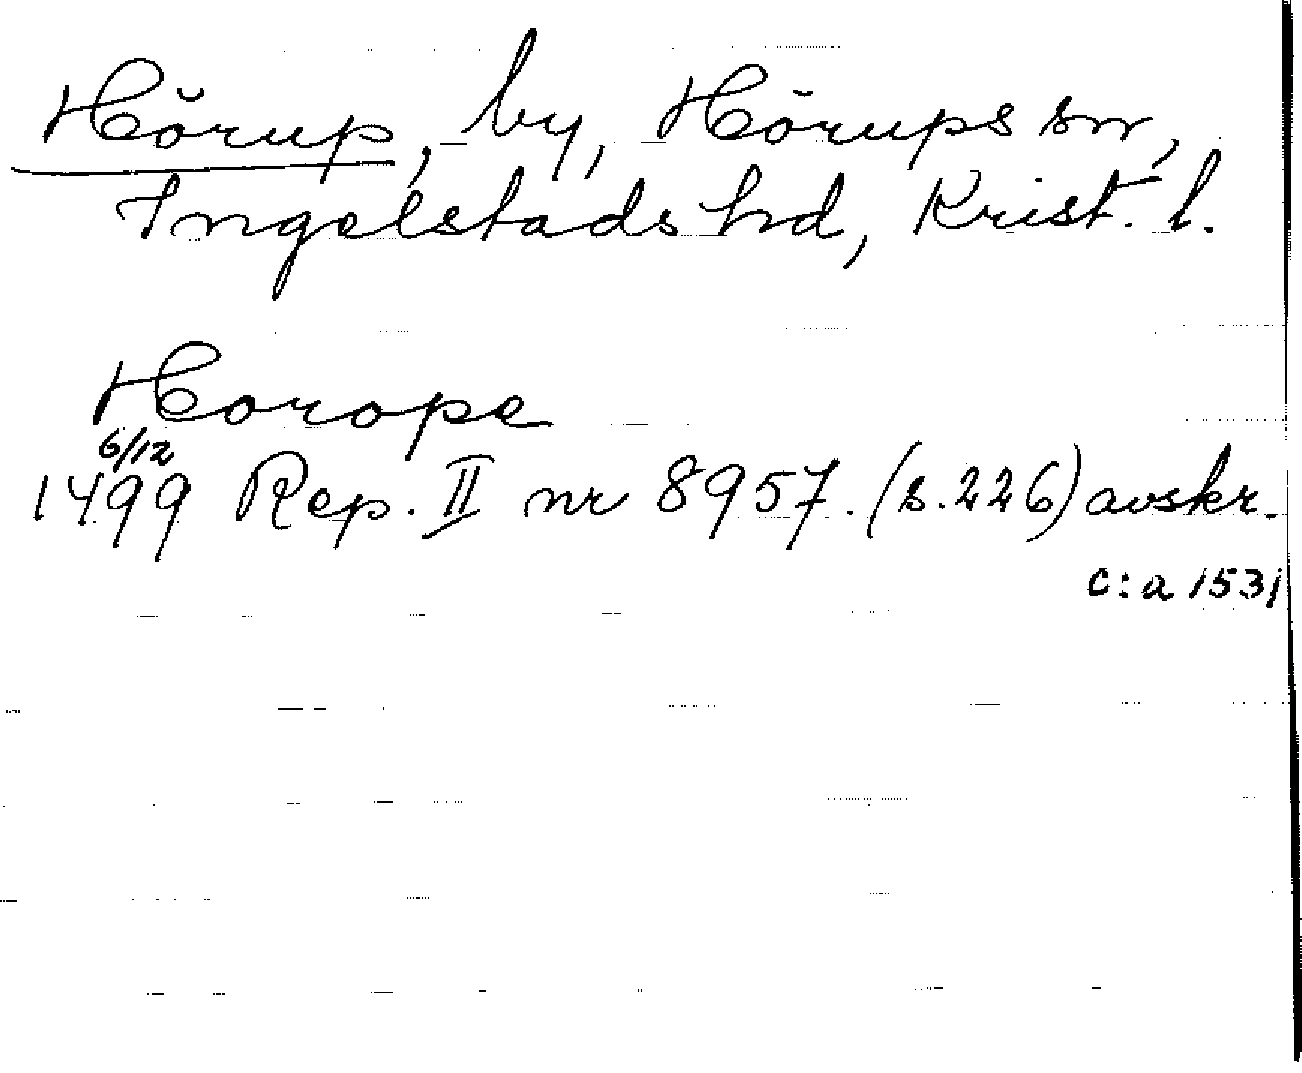 Hörup, by, Hörups sn,
Ingelstads hd, Krist. l.
Horope
6/12
1499 Rep. II nr 8957. (s. 226) avskr.
c:a 1531